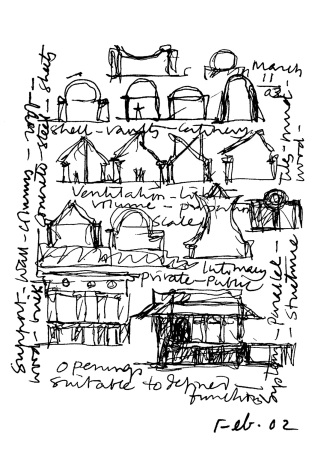 March
11
02
shell-vaults-Catenary
Ventilation-
volume-proportion
scale
Intimacy
private-Public
openings
suitable to defined-
function
Support-wall-column-roof-
wood-brick-concrete-steel-sheets
wood-
system-parallel-
structure
Feb. 02